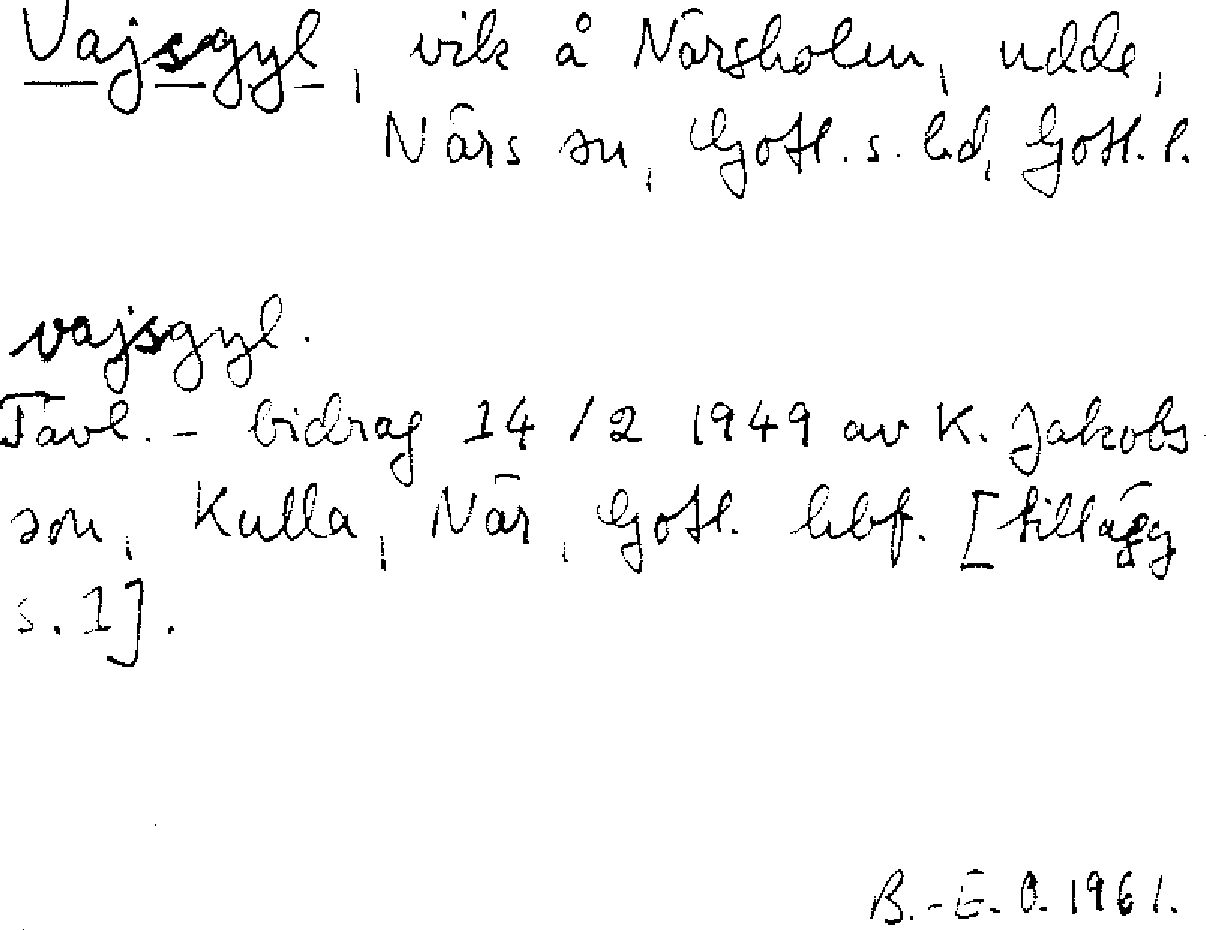 Vajsgyl, vik å Närsholm, udde,
Närs sn, Gotl. s. hd, Gotl. l.
vajsgyl.
Tävl.- bidrag 14/2 1949 av K. Jakobs-
son, Kulla, När, Gotl. hbf. [tillägg
s. 1].
B.-E. O. 1961.